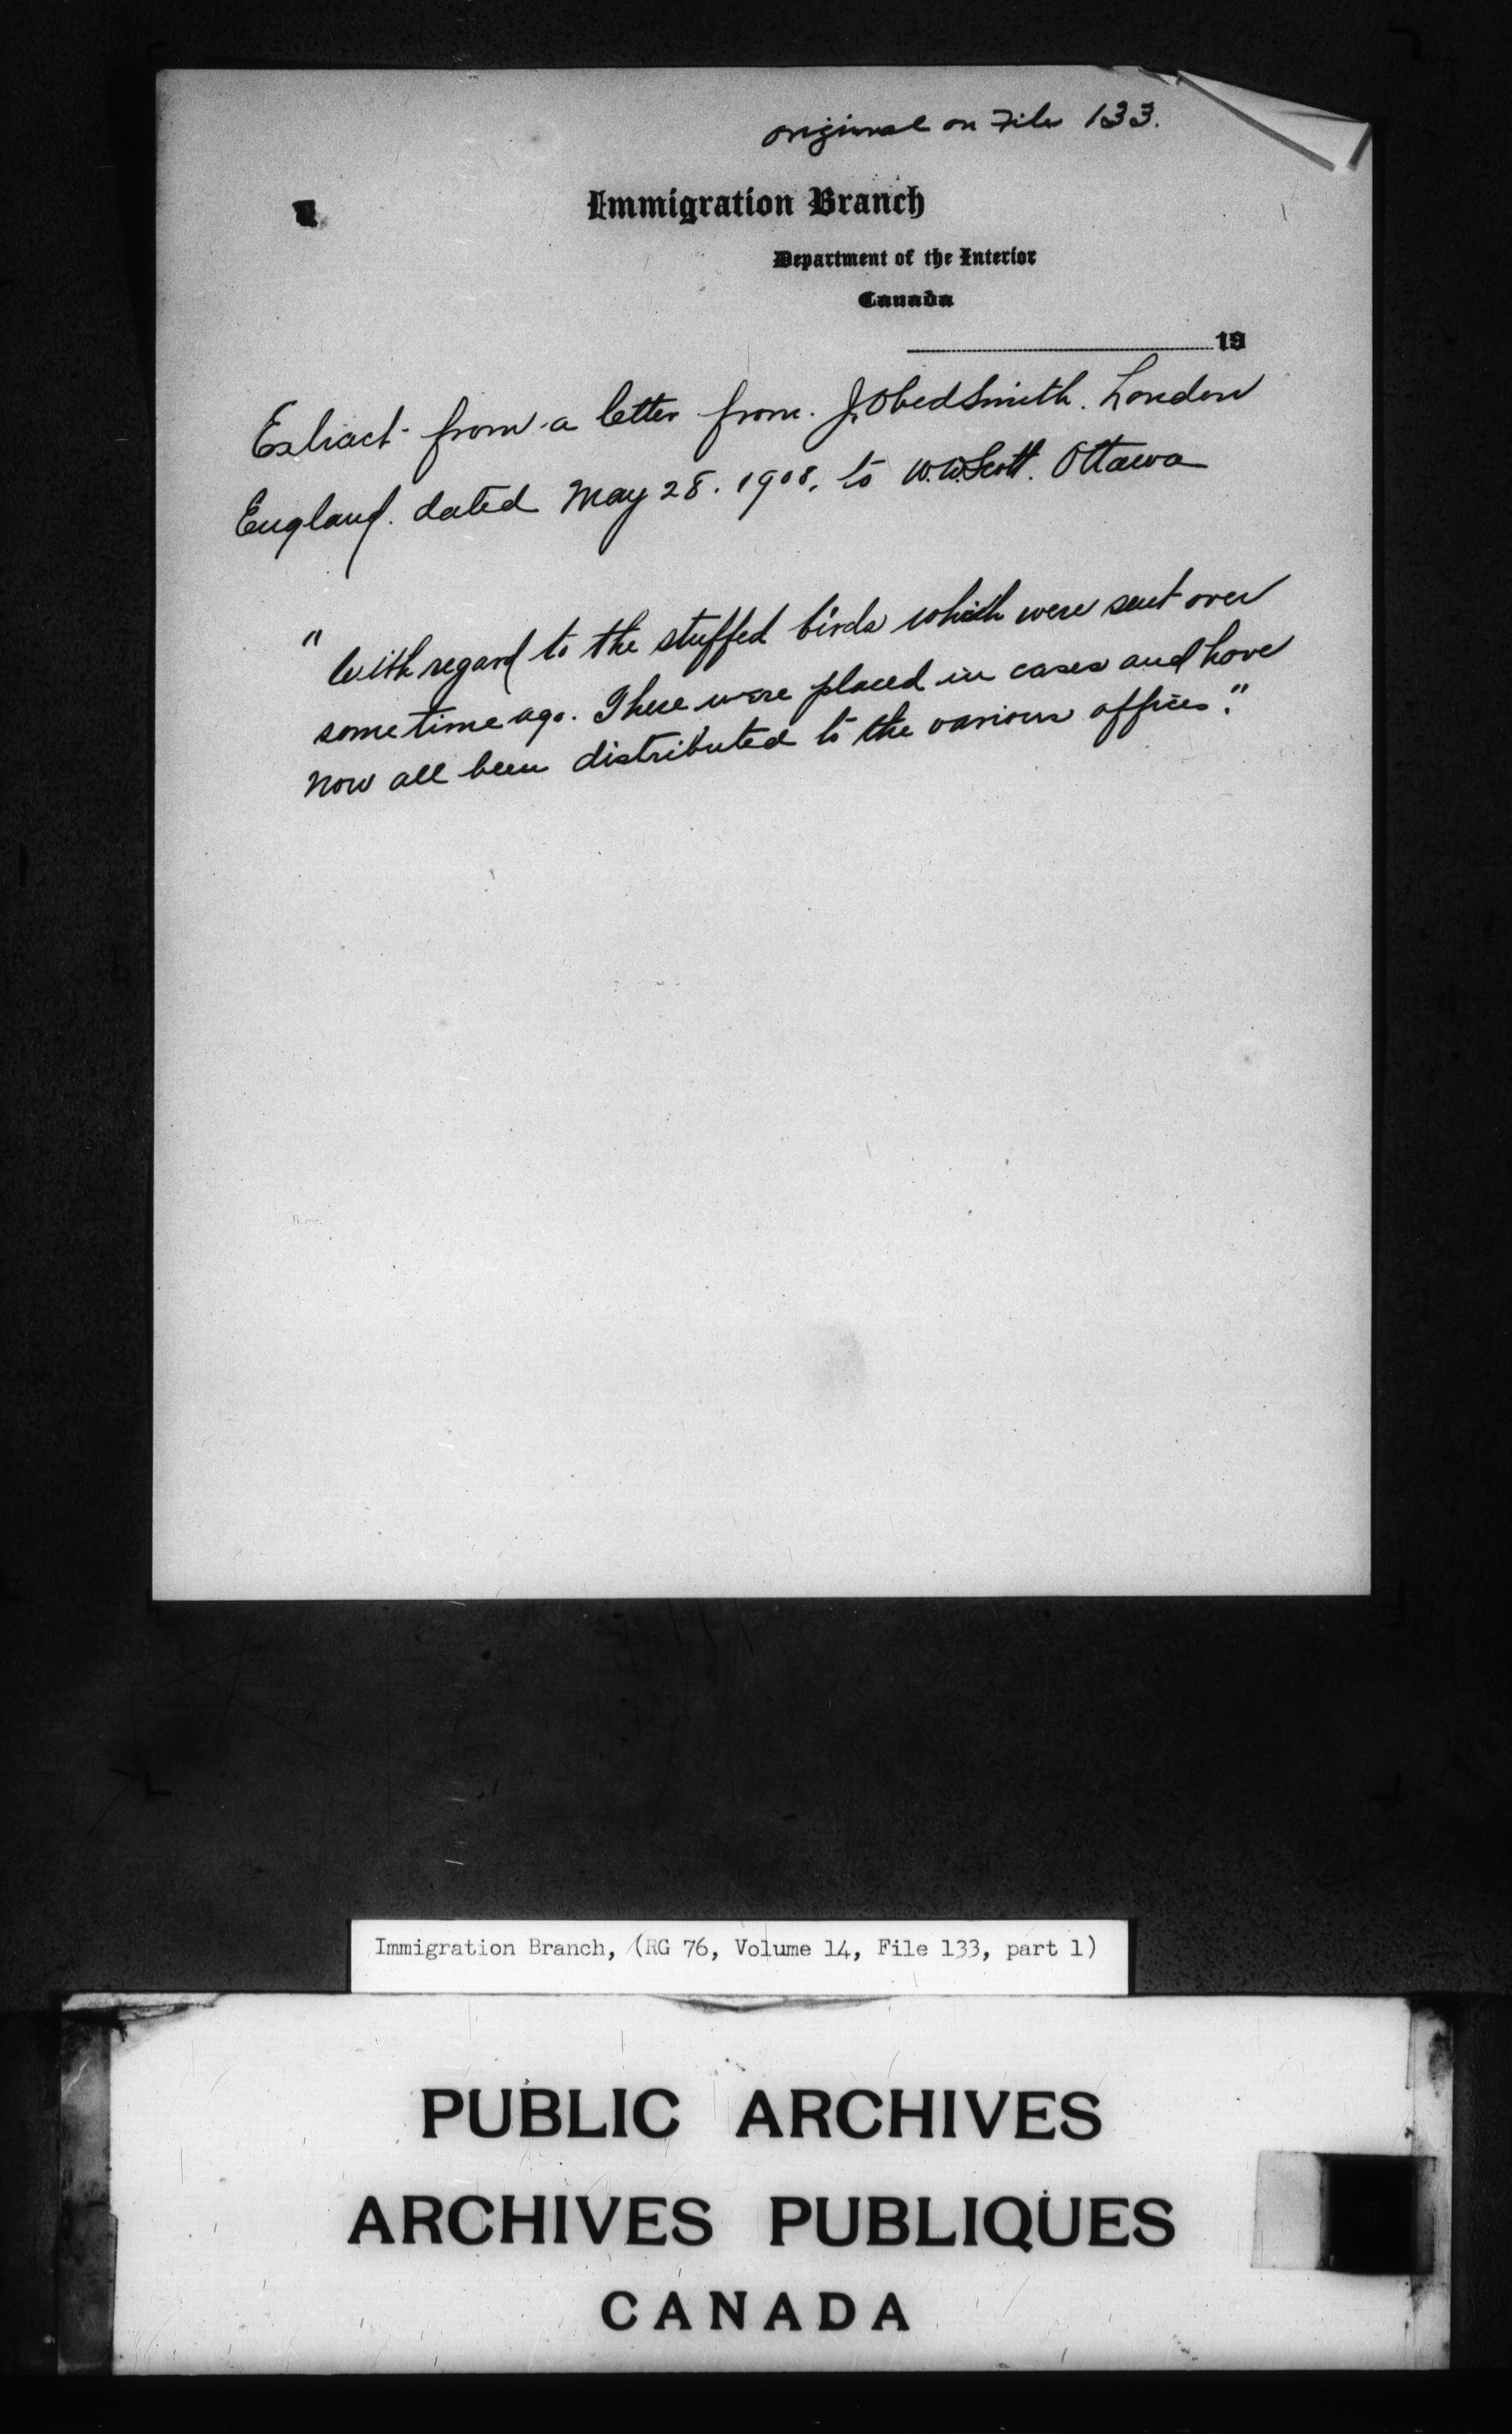 original on File 133.
Immigration Branch
Department of the Interior
Canada
19
Extract from a letter from. J. Obed Smith. London
England. dated May 28. 1908. to W.W. Scott. Ottawa
"With regard to the stuffed birds which were sent over
some time ago. These were placed in cases and have
now all been distributed to the various offices."
Immigration Branch, (RG 76, Volume 14, File 133, part 1)
PUBLIC ARCHIVES
ARCHIVES PUBLIQUES
CANADA